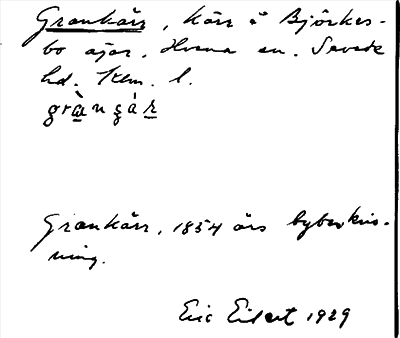 Grankärr, kärr å Björkes-
bo ägor. Hvena sn. Sevede
hd. Klm. l.
grànşár
Grankärr, 1854 års bybeskriv-
ning.
Eric Eilert 1929